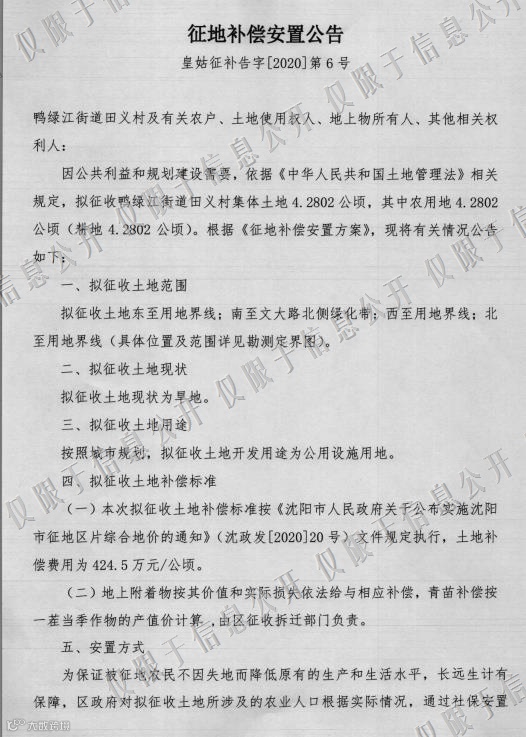 征地补偿安置公告
皇姑征补告字[2020]第6号
鸭绿江街道田义村及有关农户、土地使用权人、地上物所有人、其他相关权
利人：
因公共利益和规划建设需要，依据《中华人民共和国土地管理法》相关
规定，拟征收鸭绿江街道田义村集体土地4.2802公顷，其中农用地4.2802
公顷（耕地4.2802公顷）。根据《征地补偿安置方案》，现将有关情况公告
如下：
一、拟征收土地范围
拟征收土地东至用地界线；南至文大路北侧绿化带；西至用地界线；北
至用地界线（具体位置及范围详见勘测定界图）。
二、拟征收土地现状
拟征收土地现状为旱地。
三、拟征收土地用途
按照城市规划，拟征收土地开发用途为公用设施用地。
四、拟征收土地补偿标准
（一）本次拟征收土地补偿标准按《沈阳市人民政府关于公布实施沈阳
市征地区片综合地价的通知》（沈政发[2020]20号）文件规定执行，土地补
偿费用为424.5万元/公顷。
（二）地上附着物按其价值和实际损失依法给与相应补偿，青苗补偿按
一茬当季作物的产值价计算,由区征收拆迁部门负责。
五、安置方式
为保证被征地农民不因失地而降低原有的生产和生活水平，长远生计有
保障，区政府对拟征收土地所涉及的农业人口根据实际情况，通过社保安置
仅限于信息公开
仅限于信息公开
仅限于信息公开
仅限于信息公开
仅限于信息公开